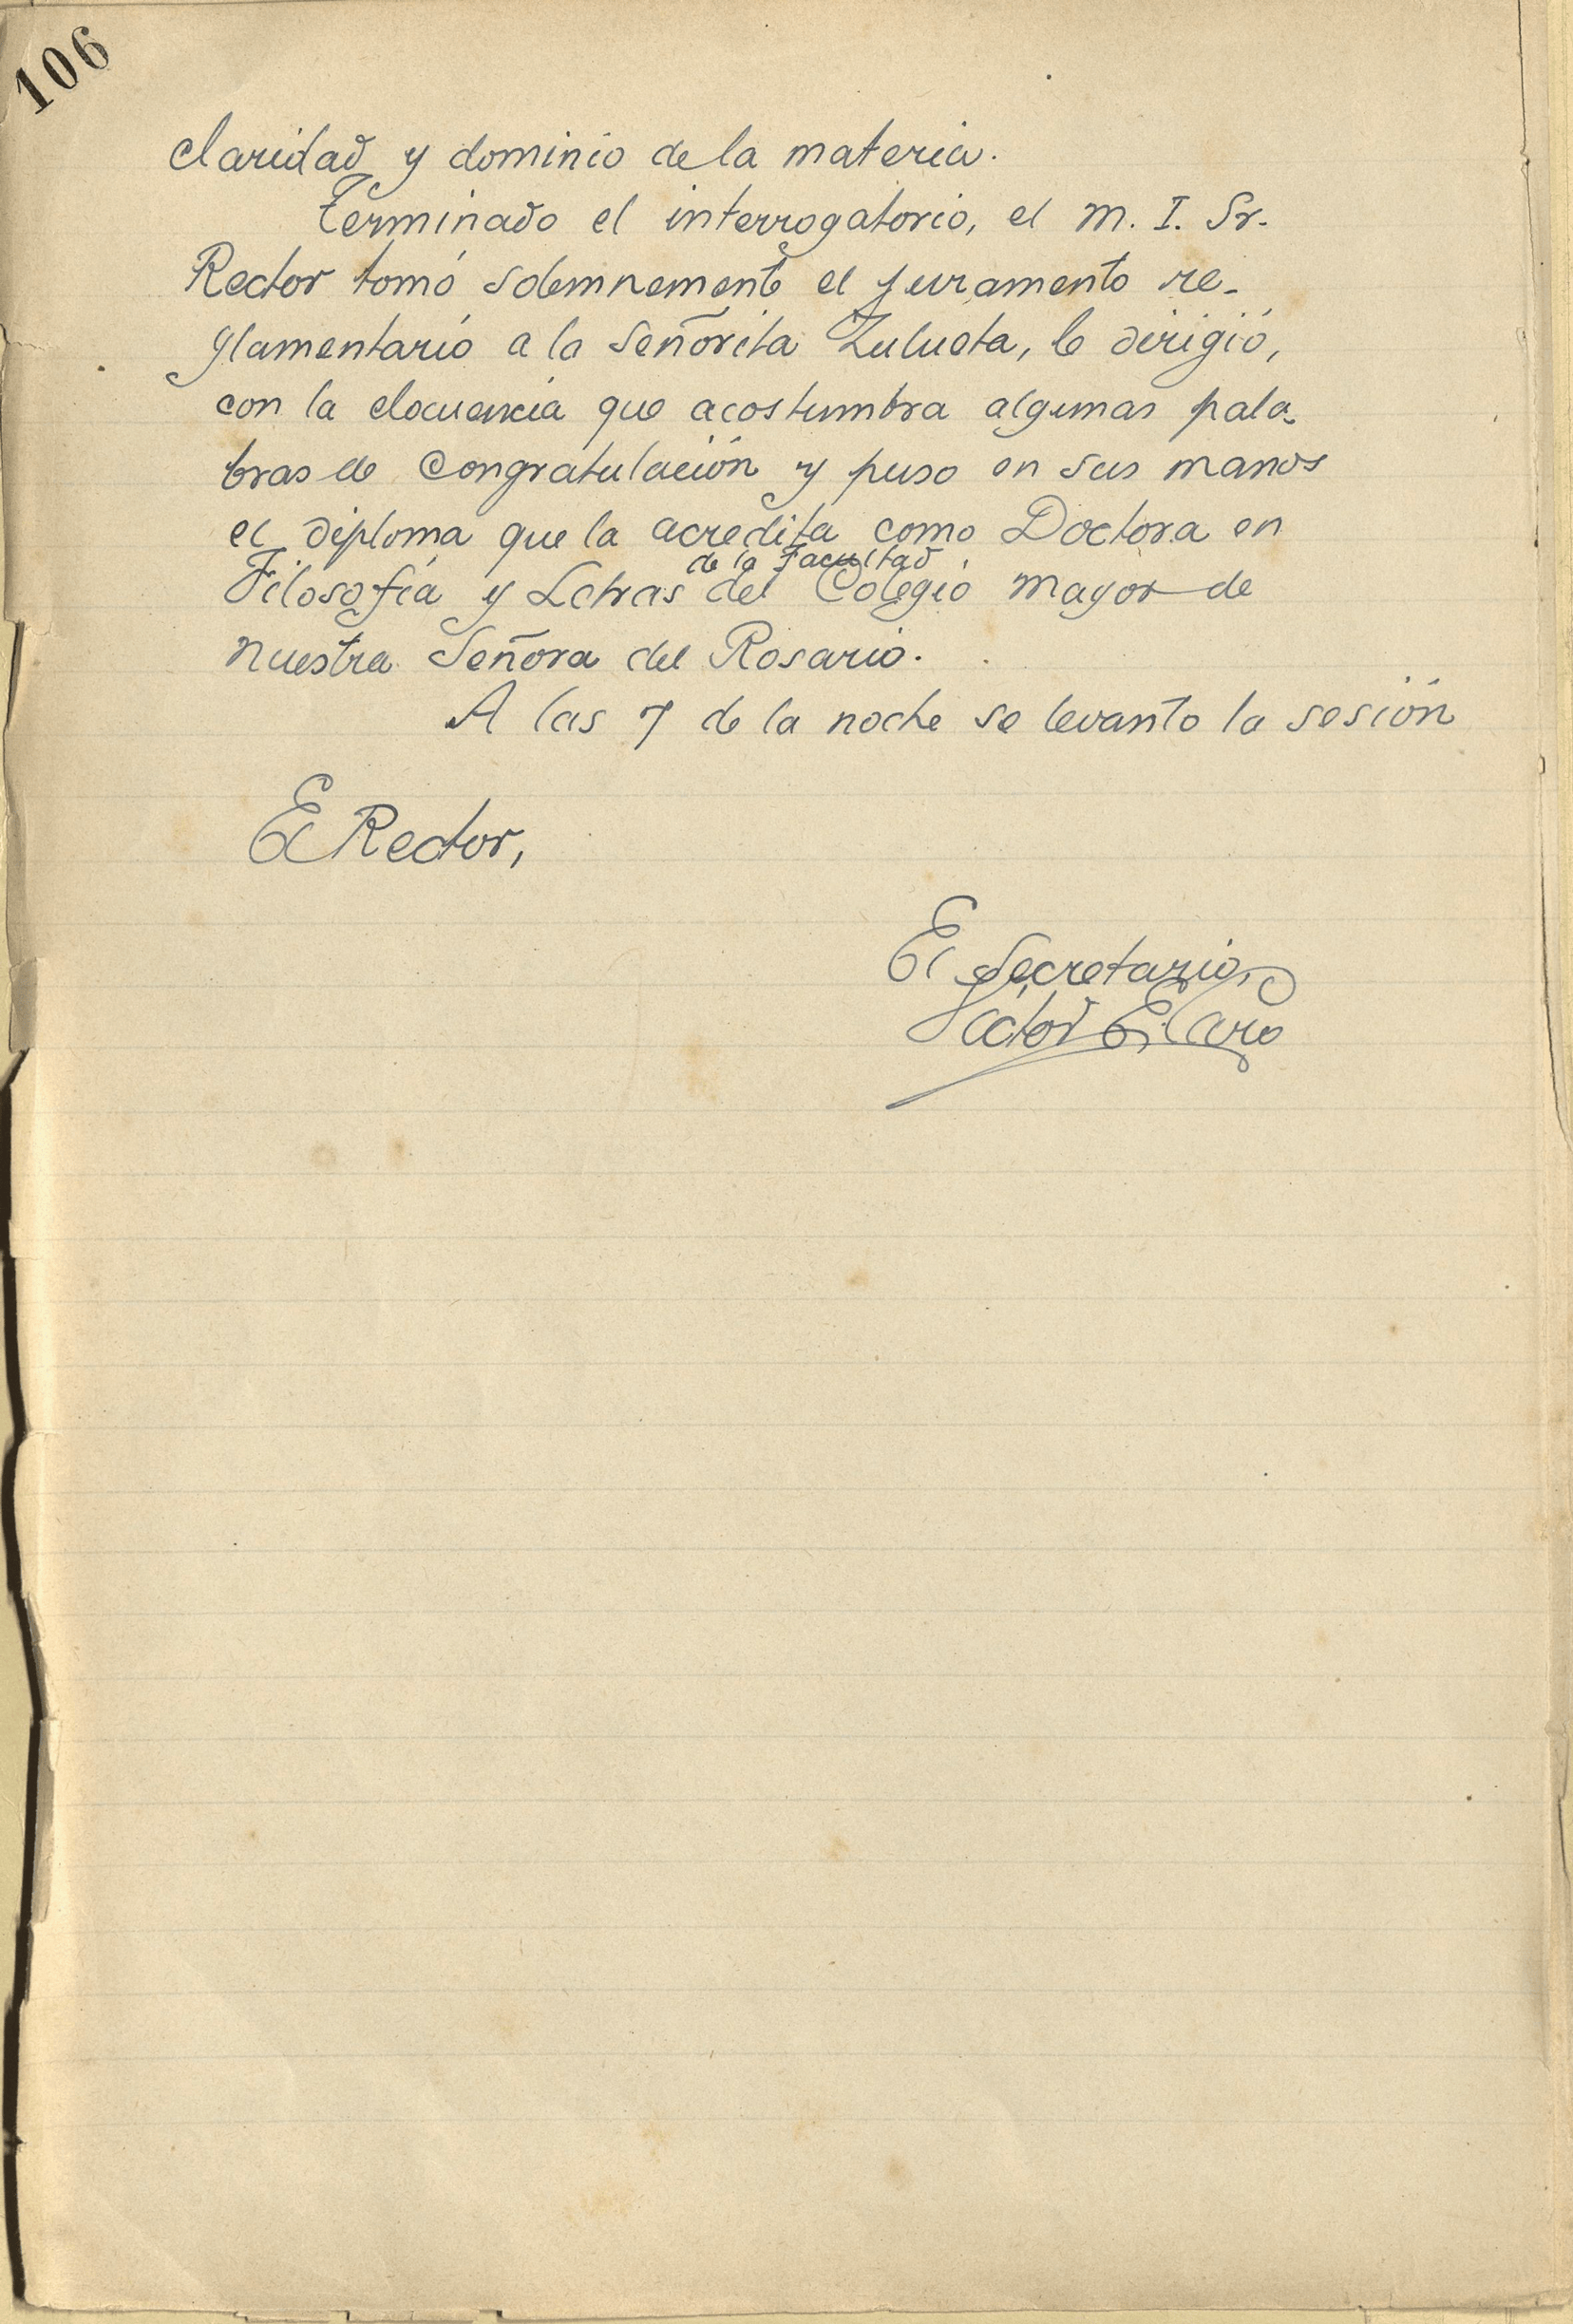 106
claridad y dominio de la materia.
Terminado el interrogatorio, el M. I. Sr.
Rector tomó solemnemente el juramento re-
glamentario a la Señorita Zulueta, le dirigió,
con la elocuencia que acostumbra algunas pala-
bras de congratulación y puso en sus manos
el diploma que la acredita como Doctora en
de la Facultad
Filosofía y Letras del Colegio Mayor de
Nuestra Señora del Rosario.
A las 7 de la noche se levanto la sesión
El Rector,
El Secretario,
Víctor E. Caro